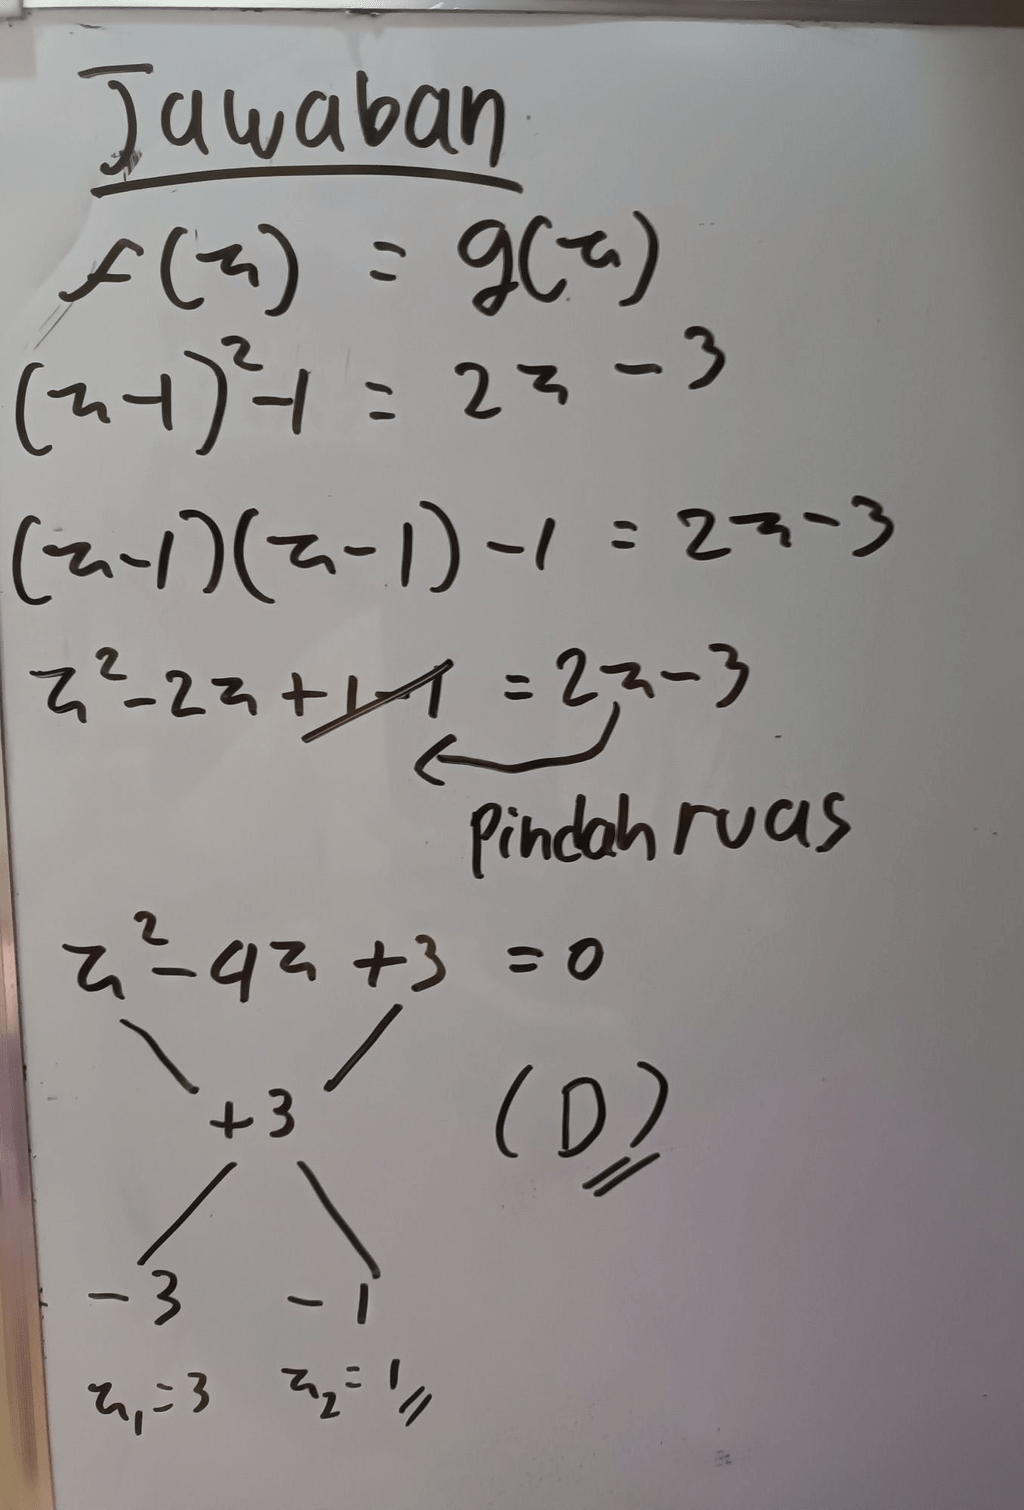 Jawaban
f(x) = g(x)
(x-1)²-1 = 2x - 3
(x-1)(x-1)-1 = 2x-3
x²-2x+1-1 = 2x-3
Pindah ruas
x²-4x+3 = 0
+3
(D)
-3 -1
x₁=3 x₂=1